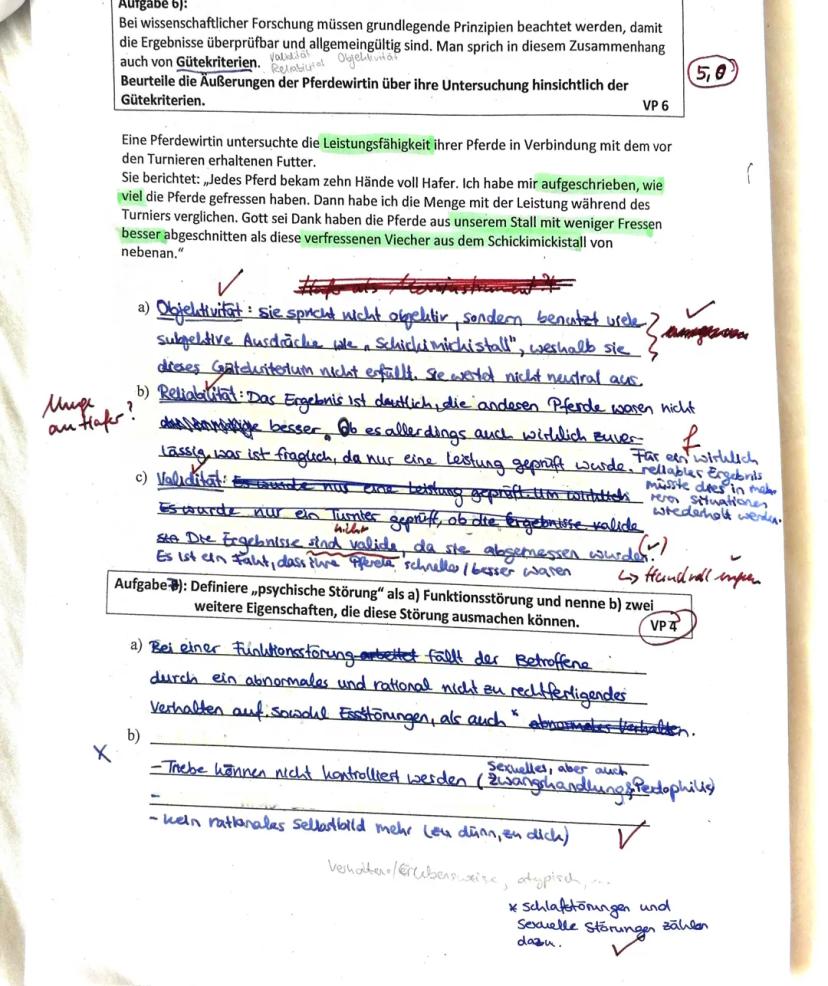 Aufgabe 6):
Bei wissenschaftlicher Forschung müssen grundlegende Prinzipien beachtet werden, damit
die Ergebnisse überprüfbar und allgemeingültig sind. Man sprich in diesem Zusammenhang
auch von Gütekriterien. Validität Objektivität
Reliabilität
Beurteile die Äußerungen der Pferdewirtin über ihre Untersuchung hinsichtlich der
Gütekriterien. VP 6
5,0
Eine Pferdewirtin untersuchte die Leistungsfähigkeit ihrer Pferde in Verbindung mit dem vor
den Turnieren erhaltenen Futter.
Sie berichtet: „Jedes Pferd bekam zehn Hände voll Hafer. Ich habe mir aufgeschrieben, wie
viel die Pferde gefressen haben. Dann habe ich die Menge mit der Leistung während des
Turniers verglichen. Gott sei Dank haben die Pferde aus unserem Stall mit weniger Fressen
besser abgeschnitten als diese verfressenen Viecher aus dem Schickimickistall von
nebenan.“
a) Objektivität: sie spricht nicht objektiv, sondern benutzt viele
subjektive Ausdrücke wie „Schickimickistall“, weshalb sie
dieses Gütekriterium nicht erfüllt. Sie wertet nicht neutral aus.
b) Reliabilität: Das Ergebnis ist deutlich, die anderen Pferde waren nicht
besser. Ob es allerdings auch wirklich zuver-
lässig war ist fraglich, da nur eine Leistung geprüft wurde. Für ein wirklich
reliables Ergebnis
müsste dies in meh-
reren Situationen
wiederholt werden.
Menge
an Hafer?
f
c) Validität: Es wurde nur eine Leistung geprüft. Um wirklich
Es wurde nur ein Turnier geprüft, ob die Ergebnisse valide
nicht
Die Ergebnisse sind valide, da sie abgemessen wurden. (✓)
Es ist ein Fakt, dass ihre Pferde schneller/besser waren
↳ Handvoll
Aufgabe 7): Definiere „psychische Störung“ als a) Funktionsstörung und nenne b) zwei
weitere Eigenschaften, die diese Störung ausmachen können. VP 4
a) Bei einer Funktionsstörung arbeitet fällt der Betroffene
durch ein abnormales und rational nicht zu rechtfertigendes
Verhalten auf. Sowohl Essstörungen, als auch * abnormales Verhalten.
b)
x
- Triebe können nicht kontrolliert werden (Sexuelles, aber auch
Zwangshandlung, Pedophilie)
-
- kein rationales Selbstbild mehr (zu dünn, zu dick)
Verhaltens/Erlebensweise, atypisch, ...
* Schlafstörungen und
Sexuelle Störungen zählen
dazu.